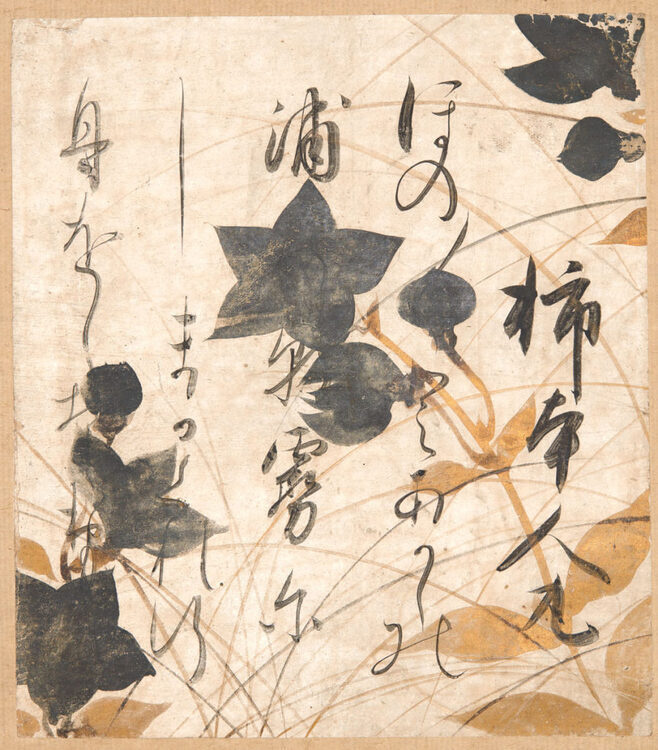 柿本人丸
ほの〱とあかしの
浦朝霧尓
しまかくれ行
舟をし